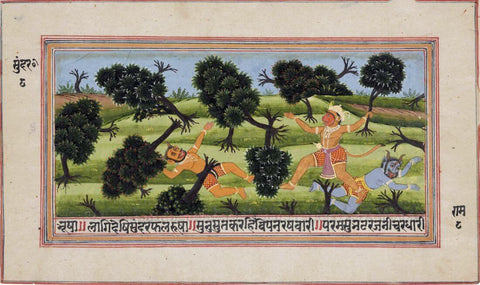 सुंदर॰
८
भूषा॥लागिदेषिसुंदरफलरूषा॥सुनुसुतकरहिविपनरषवारी॥परमसुभटरजनीचरधारी
राम
८